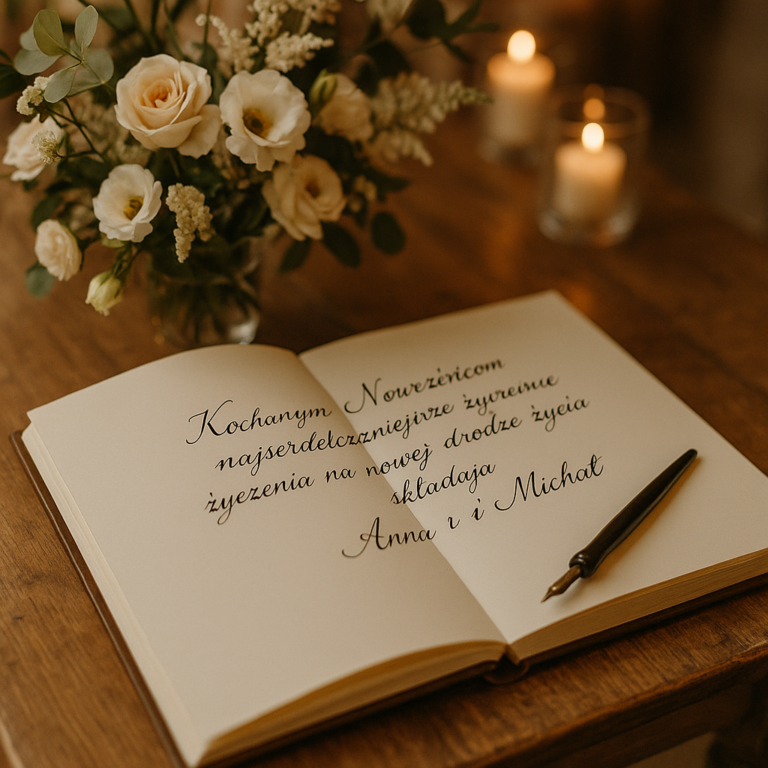 Kochanym Nowrzéricom
najserdelczzniejivze życreinie
żyezenia na nowej drodze życia
składaja
Anna r i Michał